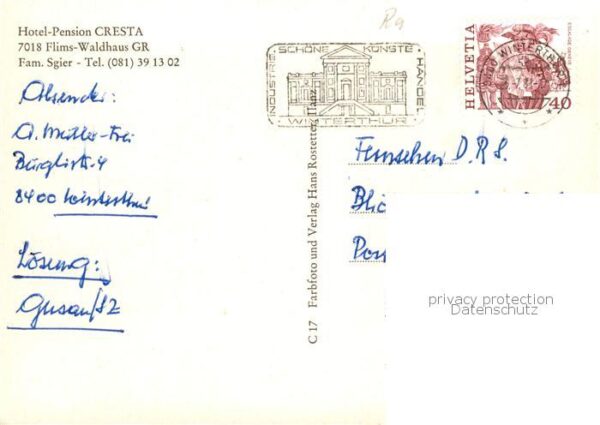 Hotel-Pension CRESTA
7018 Flims-Waldhaus GR
Fam. Sgier - Tel. (081) 39 13 02
Absender:
A. Müller-Frei
Bürglistr. 4
8400 Winterthur
Lösung:
Gersau/SZ
C 17 Farbfoto und Verlag Hans Rostetter, Ilanz
Ra
INDUSTRIE · SCHÖNE KÜNSTE · HANDEL
WINTERTHUR
WINTERTHUR
HELVETIA
40
Fernsehen D.R.S.
privacy protection
Datenschutz